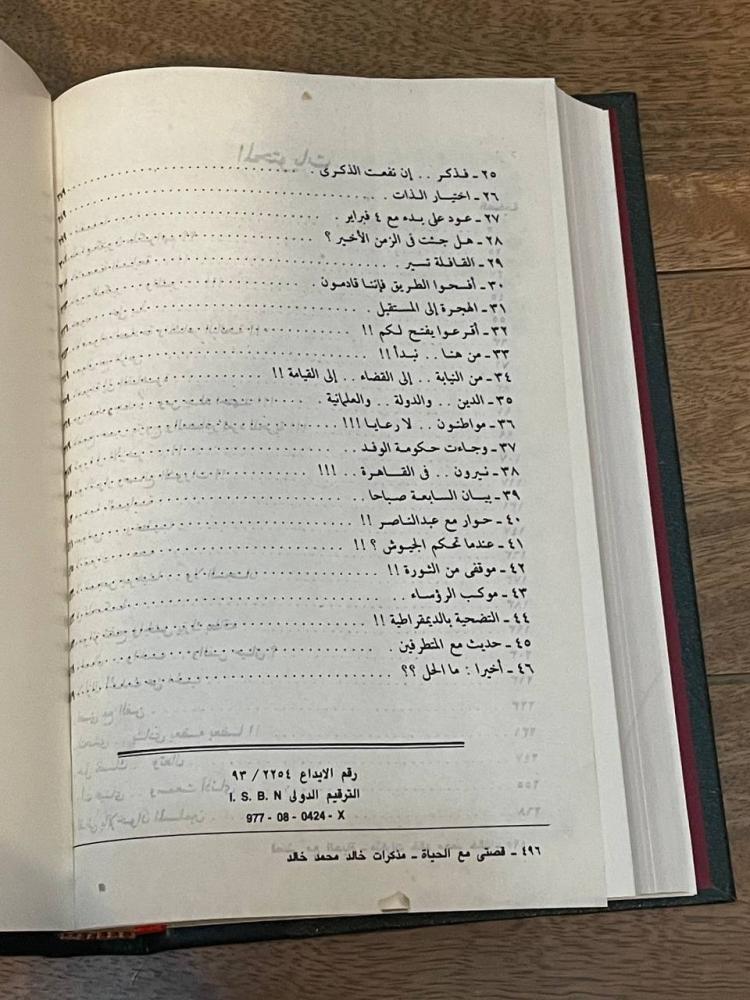 ٢٥ - فذكر . . إن نفعت الذكرى
٢٦ - اختيار الذات
٢٧ - عود على بدء مع ٤ فبراير
٢٨ - هل جئت فى الزمن الأخير ؟
٢٩ - القافلة تسير
٣٠ - أفسحوا الطريق فإننا قادمون
٣١ - الهجرة إلى المستقبل
٣٢ - أقرعوا يفتح لكم !!
٣٣ - من هنا . . نبدأ !!
٣٤ - من النيابة . . إلى القضاء . . إلى القيامة !!
٣٥ - الدين . . والدولة . . والعلمانية
٣٦ - مواطنون . . لا رعايا !!!
٣٧ - وجاءت حكومة الوفد
٣٨ - نيرون . . فى القاهرة . . !!!
٣٩ - بيان السابعة صباحا
٤٠ - حوار مع عبدالناصر !!
٤١ - عندما تحكم الجيوش ؟ !!
٤٢ - موقفى من الثورة !!
٤٣ - موكب الرؤساء
٤٤ - التضحية بالديمقراطية !!
٤٥ - حديث مع المتطرفين
٤٦ - أخيرا : ما الحل ؟؟
رقم الايداع ٢٢٥٤ / ٩٣
الترقيم الدولى I. S. B. N
977 - 08 - 0424 - X
٤٩٦ - قصتى مع الحياة - مذكرات خالد محمد خالد